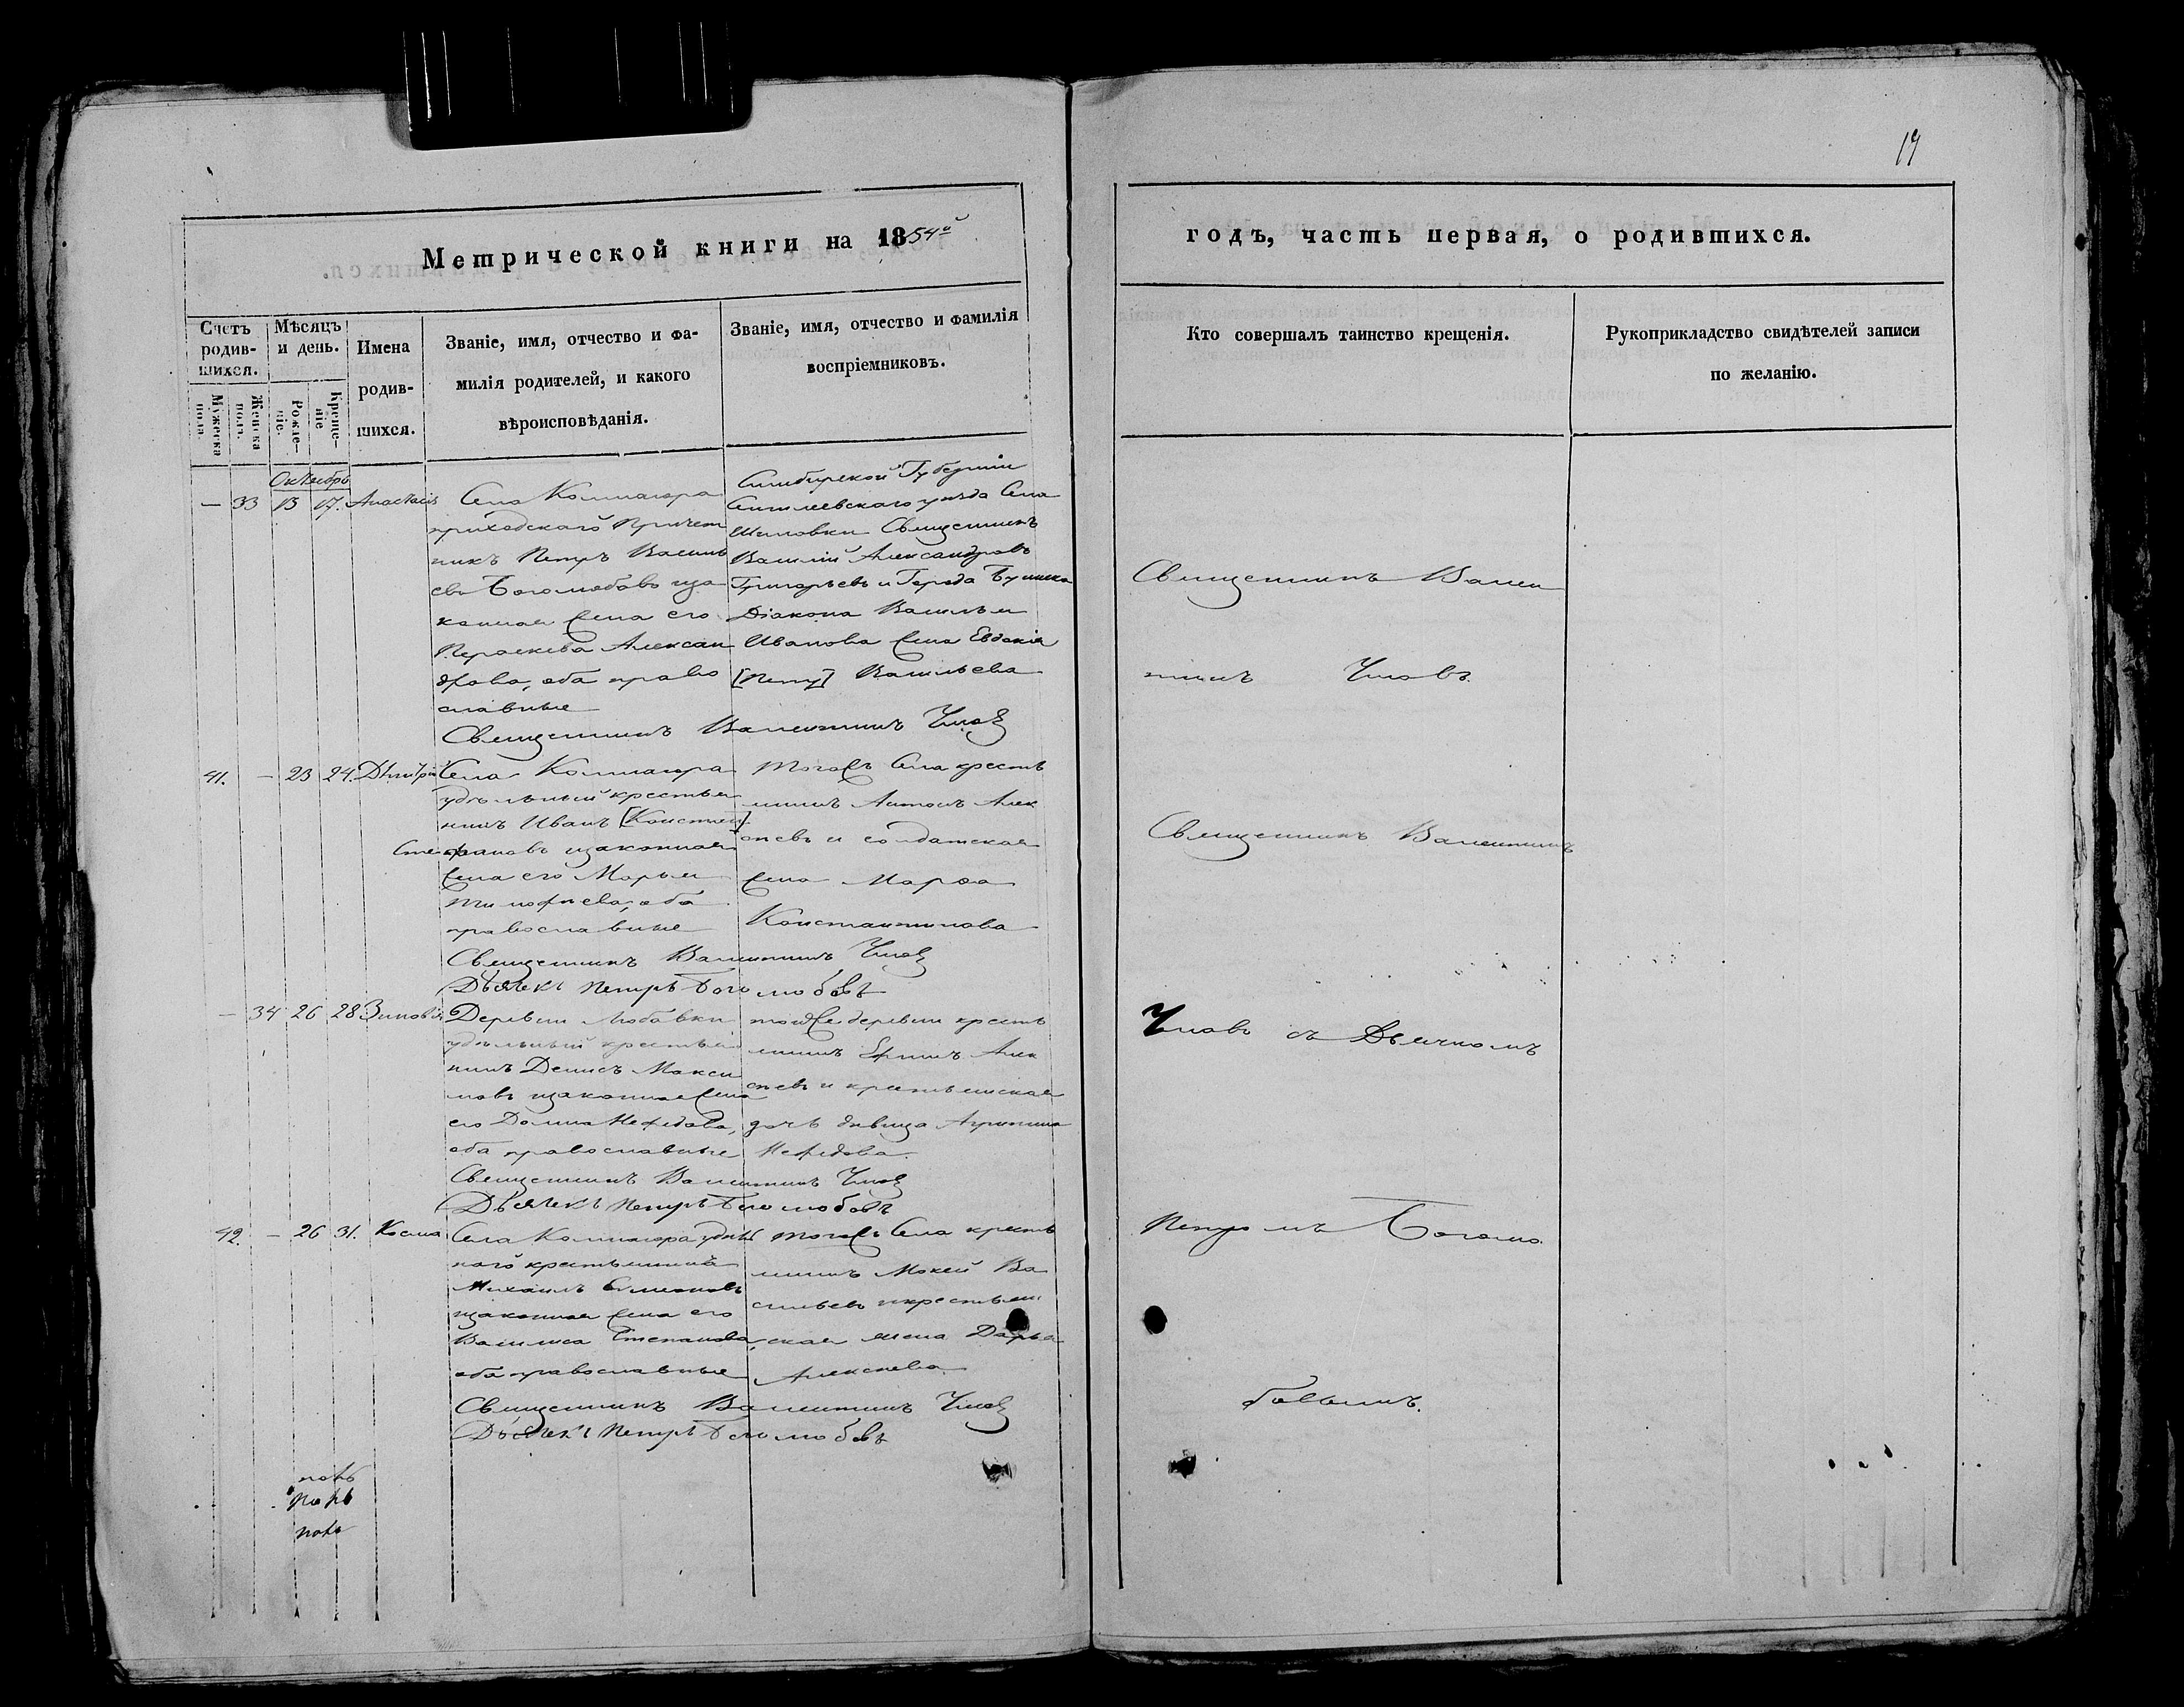 19
Метрической книги на 1854й
годъ, часть первая, о родившихся.
Счетъ родив-шихся.
Мужеска пола.
Женска пола.
Мѣсяцъ и день.
Рожде-ніе.
Креще-ніе
Имена родив-шихся.
Званіе, имя, отчество и фа-
милія родителей, и какого
вѣроисповѣданія.
Званіе, имя, отчество и фамилія
воспріемниковъ.
Кто совершалъ таинство крещенія.
Рукоприкладство свидѣтелей записи
по желанію.
Октябрь
— 33 13 17. Анастасія
Села
приходскаго Причет
никъ Петръ Василь
евъ Боголюбовъ иза
конная жена его
Параскева Алексан
дрова, оба право
славные
Симбирской Губерніи
Сенгилеевскаго уѣзда Села
Шиловки Священникъ
Василий Александровъ
Григорьевъ и Города
Діакона Василья
Иванова жена Евдокія
[Петр] Васильева
Священникъ Валентинъ
41. — 23 24. Дмитрій
Села
удѣльный крестья
нинъ Иванъ [Констан]
Стефановъ изаконная
жена его Марья
Тимофѣева, оба
православные
Тогожъ Села кресть
янинъ Антонъ Алек
сѣевъ и солдатская
жена Марѳа
Константинова
Священникъ Валентинъ
Дьячекъ Петръ Боголюбовъ
— 34 26 28 Зиновія
Деревни Любавки
удѣльный крестья
нинъ Денисъ Макси
мовъ изаконная жена
его Домна Нефедова,
оба православные
тойже деревни кресть
янинъ Алек
сѣевъ и крестьянская
дочь дѣвица Агрипина
Нефедова.
Священникъ Валентинъ
Дьячекъ Петръ Боголюбовъ
42. — 26 31. Косма
Села удѣль
наго крестьянина
Михаилъ Симеоновъ
изаконная жена его
Василиса Степанова,
оба православные
Тогожъ Села кресть
янинъ Мокей Ва
сильевъ икрестьян
ская жена Дарья
Алексѣева
Священникъ Валентинъ
Дьячекъ Петръ Боголюбовъ
Священникъ Вален
тинъ
Священникъ Валентинъ
съ Дьячкомъ
Петромъ Боголю
бовымъ.